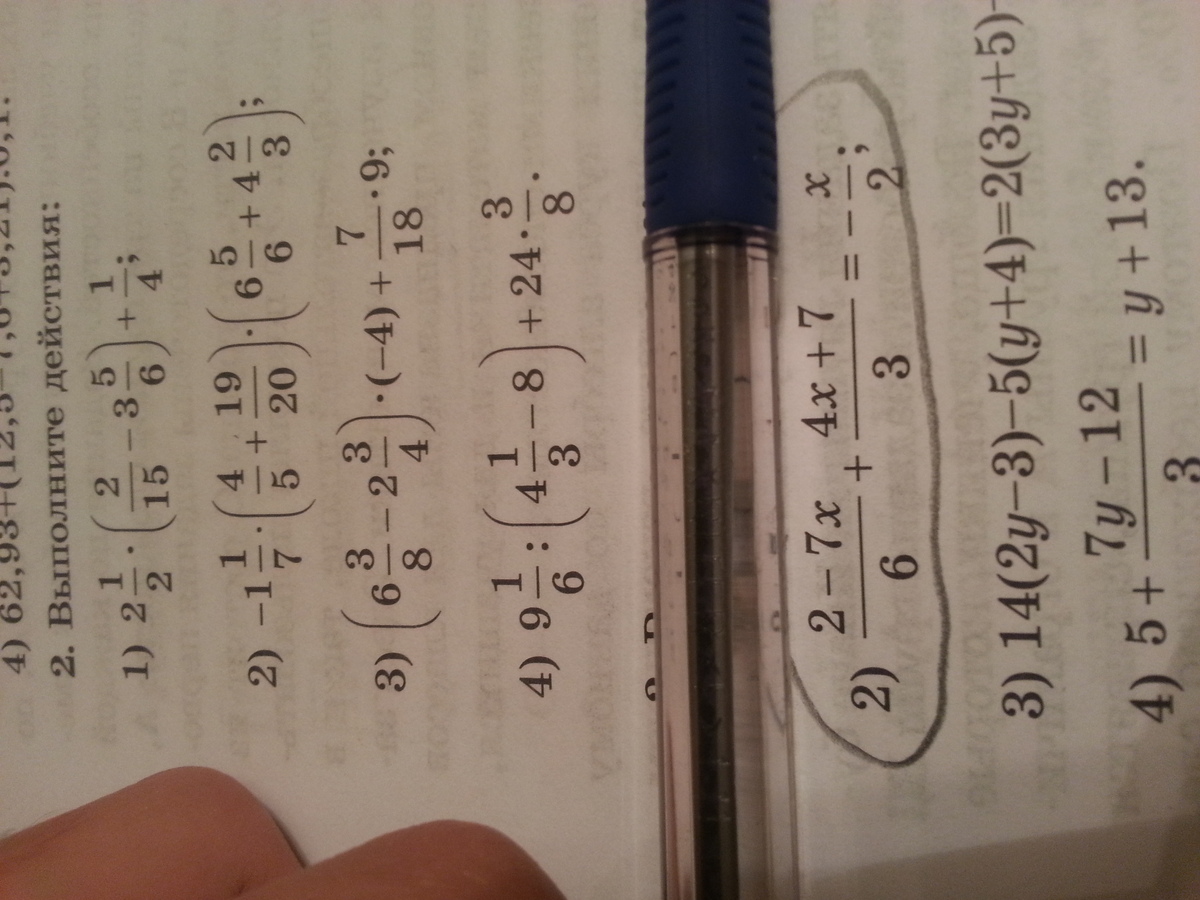 4) 62,93+(12,5−7,6+3,21):0,1.
2. Выполните действия:
1) 2 1/2 · (2/15 − 3 5/6) + 1/4;
2) −1 1/7 · (4/5 + 19/20) · (6 5/6 + 4 2/3);
3) (6 3/8 − 2 3/4) · (−4) + 7/18 · 9;
4) 9 1/6 : (4 1/3 − 8) + 24 · 3/8.
2) (2 − 7x)/6 + (4x + 7)/3 = − x/2;
3) 14(2y−3)−5(y+4)=2(3y+5)
4) 5 + (7y − 12)/3 = y + 13.